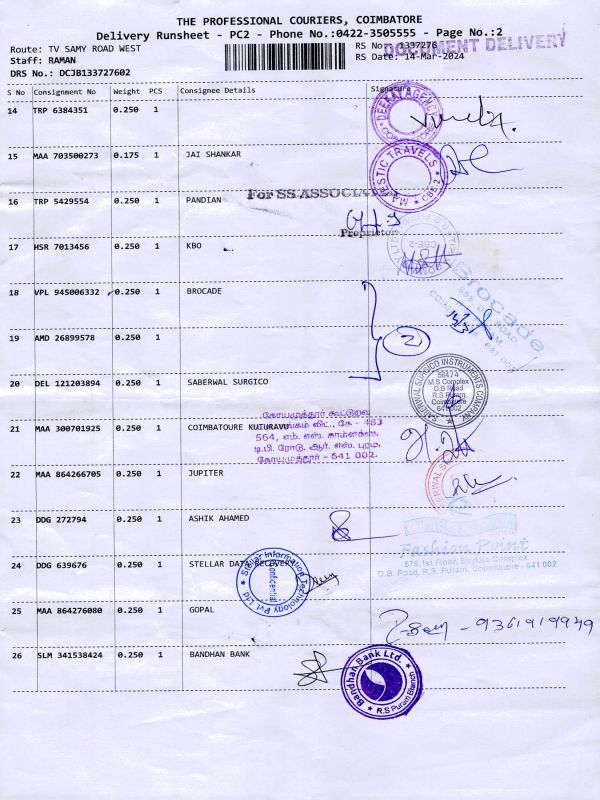 THE PROFESSIONAL COURIERS, COIMBATORE
Delivery Runsheet - PC2 - Phone No.:0422-3505555 - Page No.:2
Route: TV SAMY ROAD WEST
RS No: 1337276
DOCUMENT DELIVERY
Staff: RAMAN
RS Date: 14-Mar-2024
DRS No.: DCJB133727602
S No Consignment No Weight PCS Consignee Details Signature
14 TRP 6384351 0.250 1
15 MAA 703500273 0.175 1 JAI SHANKAR
MAJESTIC TRAVELS CBE-2
For SS ASSOCIATES
16 TRP 5429554 0.250 1 PANDIAN
Proprietor
17 HSR 7013456 0.250 1 KBO
CBE-2
18 VPL 945006332 0.250 1 BROCADE
Brocade
19 AMD 26899578 0.250 1
2
20 DEL 121203894 0.250 1 SABERWAL SURGICO
SABERWAL SURGICO INSTRUMENTS COMPANY
M.S Complex
D.B Road
R.S Puram,
Coimbatore
641 002
21 MAA 300701925 0.250 1 COIMBATOURE KUTURAVU
கோயமுத்தூர் கூட்டுறவு
564, எம். எஸ். காம்ளக்ஸ்,
டி.பி. ரோடு, ஆர். எஸ். புரம்,
கோயமுத்தூர் - 641 002.
22 MAA 864266705 0.250 1 JUPITER
23 DDG 272794 0.250 1 ASHIK AHAMED
Fashion Point
575, Ist Floor, Shylaja Complex
D.B. Road, R.S. Puram, Coimbatore - 641 002
24 DDG 639676 0.250 1 STELLAR DATA RECOVERY
Stellar Information Technology Pvt. Ltd
Confidential
25 MAA 864276080 0.250 1 GOPAL
- 9361919949
26 SLM 341538424 0.250 1 BANDHAN BANK
Bandhan Bank Ltd.
R.S Puram Branch